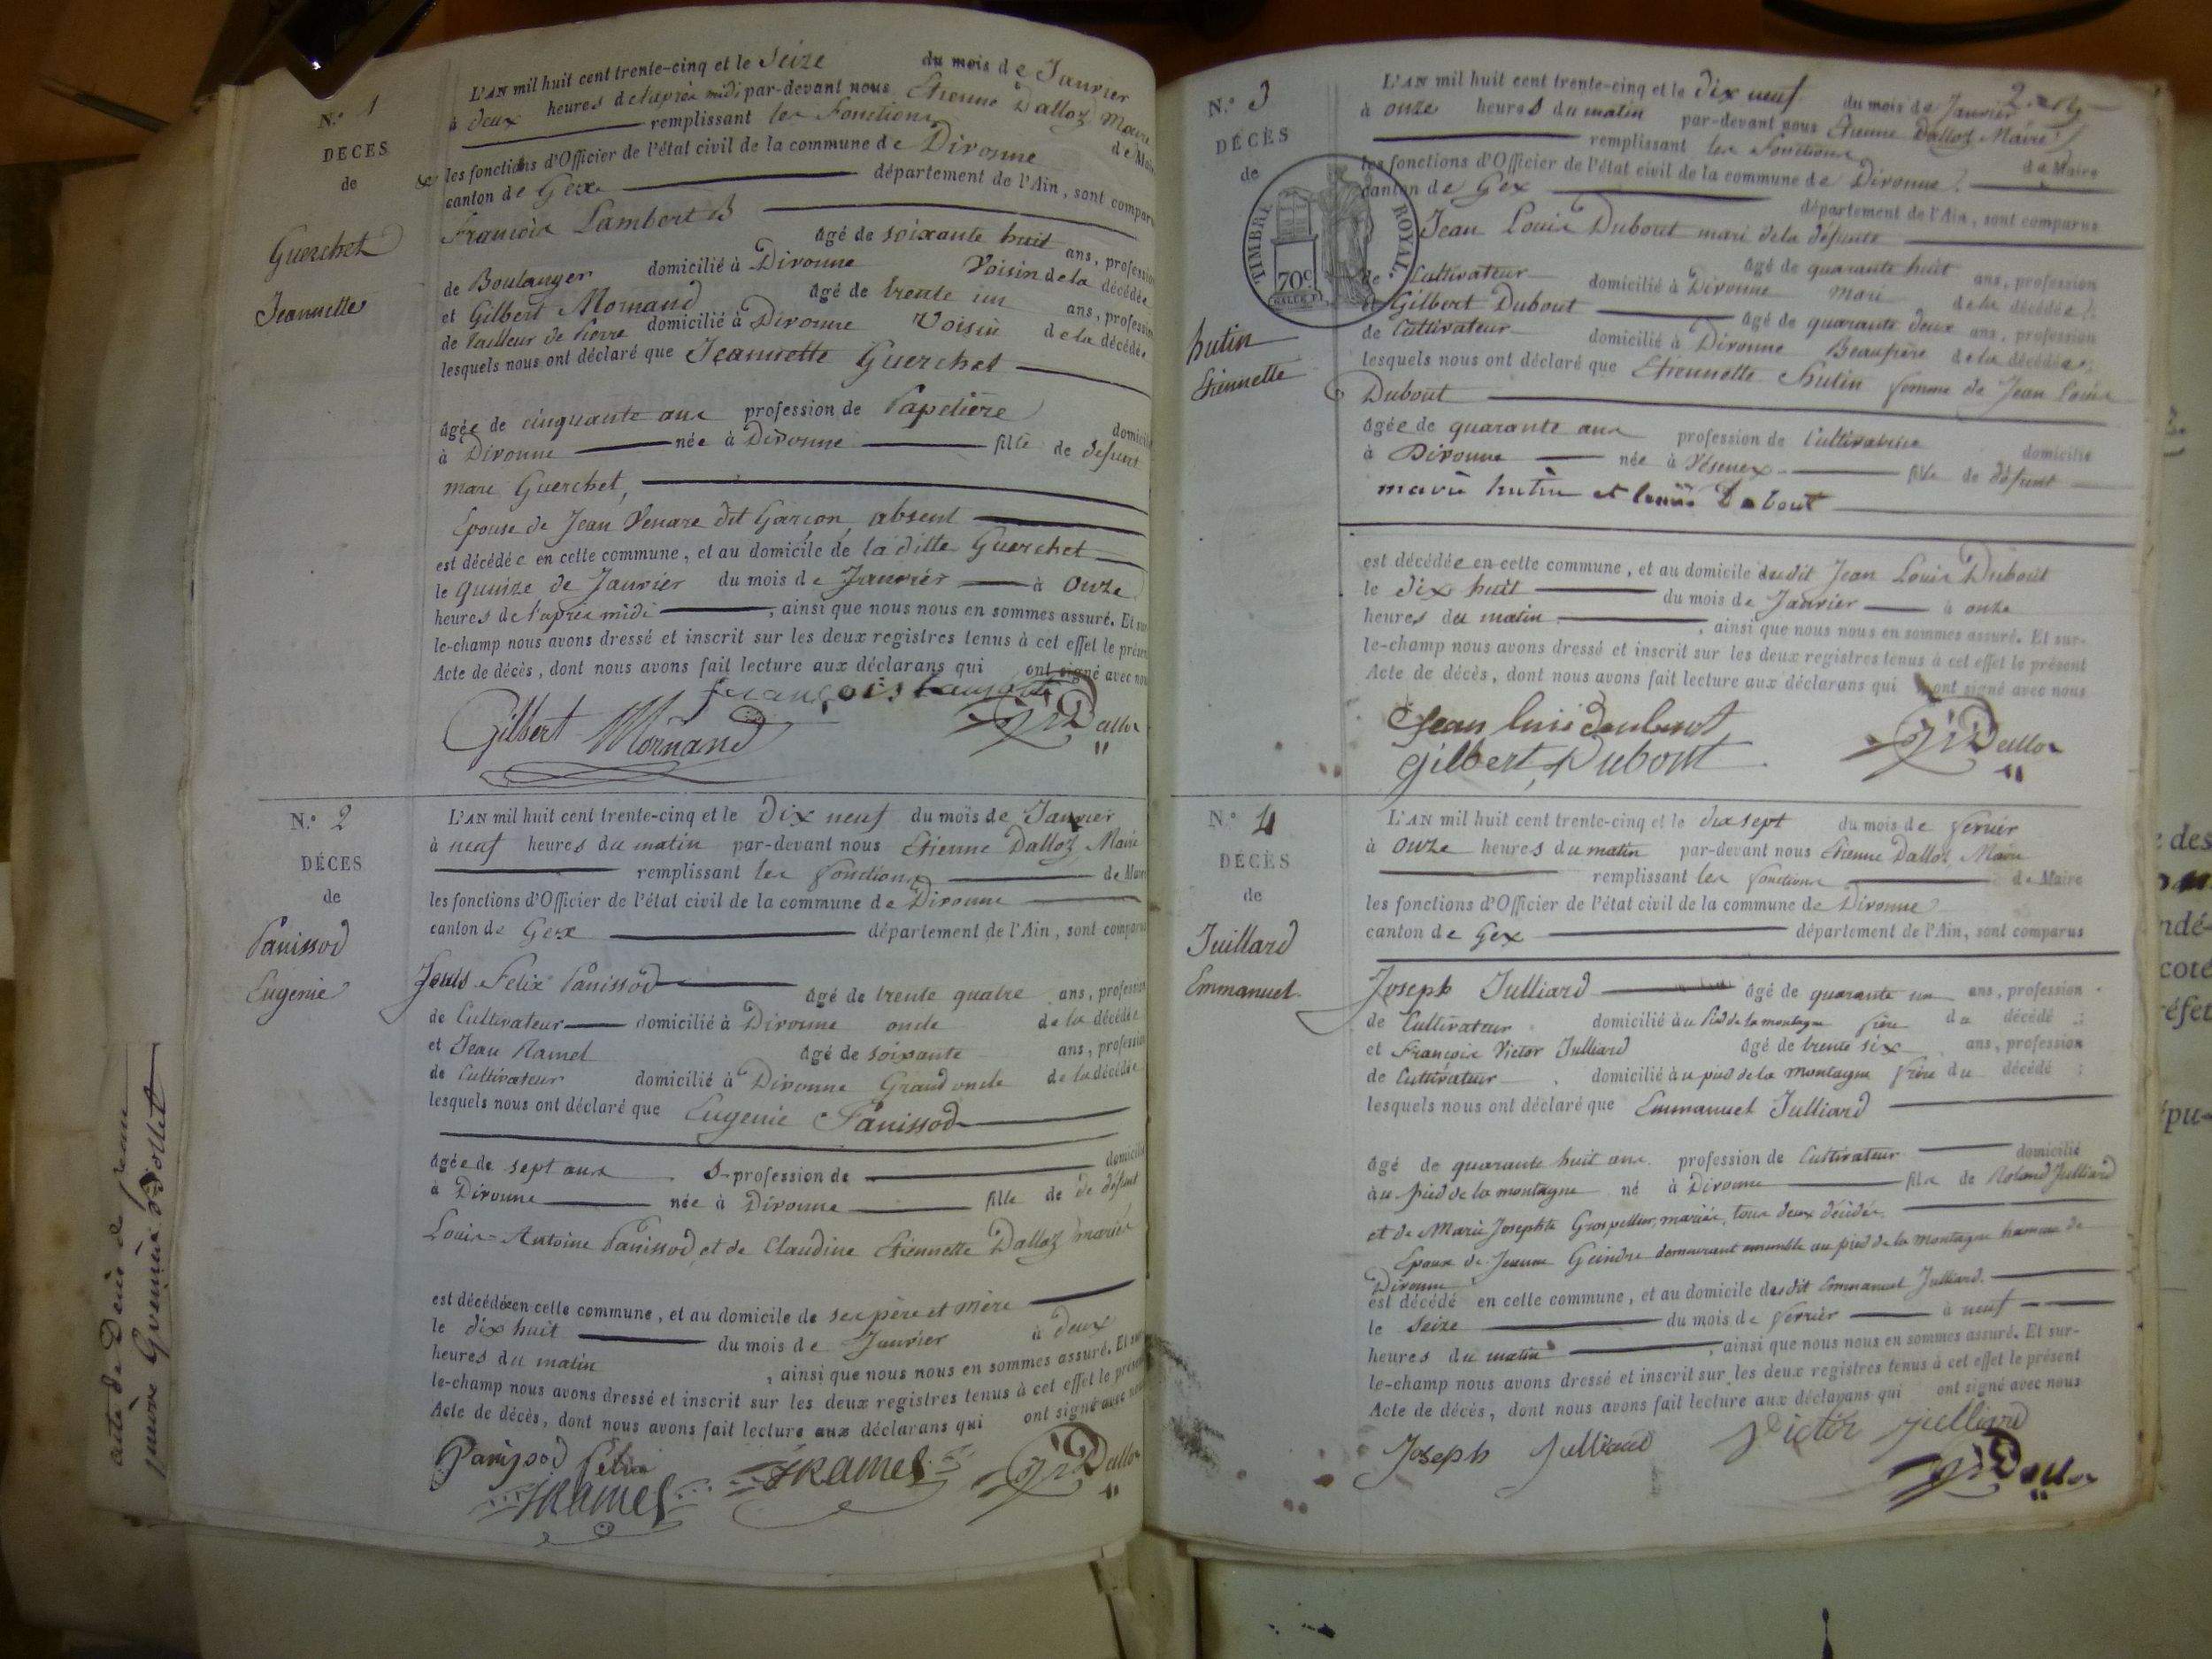 N.° 1
DÉCÈS
de
Guerchet
Jeannette
L'AN mil huit cent trente-cinq et le Seize du mois de Janvier
à deux heures de l'après midi par-devant nous Etienne Dalloz Maire
remplissant les Fonctions de Maire
les fonctions d'Officier de l'état civil de la commune de Divonne
canton de Gex département de l'Ain, sont comparus
François Lambert
âgé de soixante huit ans, profession
de Boulanger domicilié à Divonne Voisin de la décédée
et Gilbert Mornand âgé de trente un ans, profession
de tailleur de Pierre domicilié à Divonne Voisin de la décédée
lesquels nous ont déclaré que Jeannette Guerchet
âgée de cinquante ans profession de Papetière domicilié
à Divonne née à Divonne fille de défunt
marc Guerchet,
Epouse de Jean Venare dit Garçon, absent
est décédée en cette commune, et au domicile de la ditte Guerchet
le quinze de Janvier du mois de Janvier à onze
heures de l'après midi, ainsi que nous nous en sommes assuré. Et sur-
le-champ nous avons dressé et inscrit sur les deux registres tenus à cet effet le présent
Acte de décès, dont nous avons fait lecture aux déclarans qui ont signé avec nous
françois Lambert
Gilbert Mornand Dalloz
N.° 2
DÉCÈS
de
Panissod
Eugenie
L'AN mil huit cent trente-cinq et le Dix neuf du mois de Janvier
à neuf heures du matin par-devant nous Etienne Dalloz Maire
remplissant les fonctions de Maire
les fonctions d'Officier de l'état civil de la commune de Divonne
canton de Gex département de l'Ain, sont comparus
Felix Panissod âgé de trente quatre ans, profession
de Cultivateur domicilié à Divonne oncle de la décédée
et Jean Ramel âgé de soixante ans, profession
de Cultivateur domicilié à Divonne Grand oncle de la décédée
lesquels nous ont déclaré que Eugenie Panissod
âgée de sept ans S- profession de domicilié
à Divonne née à Divonne fille de de défunt
Louis-Antoine Panissod et de Claudine Etiennette Dalloz mariés
est décédée en cette commune, et au domicile de ses père et mère
le dix huit du mois de Janvier à deux
heures du matin, ainsi que nous nous en sommes assuré. Et sur-
le-champ nous avons dressé et inscrit sur les deux registres tenus à cet effet le présent
Acte de décès, dont nous avons fait lecture aux déclarans qui ont signé avec nous
Panissod felix JRamel Dalloz
JRamel
N.° 3
DÉCÈS
de
hutin
Etiennette
TIMBRE ROYAL.
70c
L'AN mil huit cent trente-cinq et le Dix neuf du mois de Janvier
à onze heures du matin par-devant nous Etienne Dalloz Maire
remplissant les fonctions de Maire
les fonctions d'Officier de l'état civil de la commune de Divonne
canton de Gex département de l'Ain, sont comparus
Jean Louis Dubout mari de la défunte
âgé de quarante huit ans, profession
de Cultivateur domicilié à Divonne mari de la décédée
et Gilbert Dubout âgé de quarante deux ans, profession
de Cultivateur domicilié à Divonne Beaufrère de la décédée
lesquels nous ont déclaré que Etiennette hutin femme de Jean Louis
Dubout
âgée de quarante ans profession de Cultivatrice domicilié
à Divonne née à fille de défunt
hutin et
est décédée en cette commune, et au domicile dudit Jean Louis Dubout
le dix huit du mois de Janvier à onze
heures du matin, ainsi que nous nous en sommes assuré. Et sur-
le-champ nous avons dressé et inscrit sur les deux registres tenus à cet effet le présent
Acte de décès, dont nous avons fait lecture aux déclarans qui ont signé avec nous
Jean
Gilbert Dubout Dalloz
N.° 4
DÉCÈS
de
Juillard
Emmanuel
L'AN mil huit cent trente-cinq et le dix sept du mois de fevrier
à onze heures du matin par-devant nous Etienne Dalloz Maire
remplissant les fonctions de Maire
les fonctions d'Officier de l'état civil de la commune de Divonne
canton de Gex département de l'Ain, sont comparus
Joseph Julliard âgé de quarante un ans, profession
de Cultivateur domicilié au Pied de la montagne frère du décédé
et François Victor Julliard âgé de trente six ans, profession
de Cultivateur domicilié au pied de la montagne frère du décédé
lesquels nous ont déclaré que Emmanuel Julliard
âgé de quarante huit ans profession de Cultivateur domicilié
au pied de la montagne né à Divonne fils de Roland Julliard
et de Marie Josephte Grospellier, mariés, tous deux décédés.
Epoux de Jeanne Geindre demeurant ensemble au pied de la montagne hameau de
Divonne
est décédé en cette commune, et au domicile dudit Emmanuel Julliard.
le Seize du mois de fevrier à neuf
heures du matin, ainsi que nous nous en sommes assuré. Et sur-
le-champ nous avons dressé et inscrit sur les deux registres tenus à cet effet le présent
Acte de décès, dont nous avons fait lecture aux déclarans qui ont signé avec nous
Joseph Julliard Victor Julliard
Dalloz